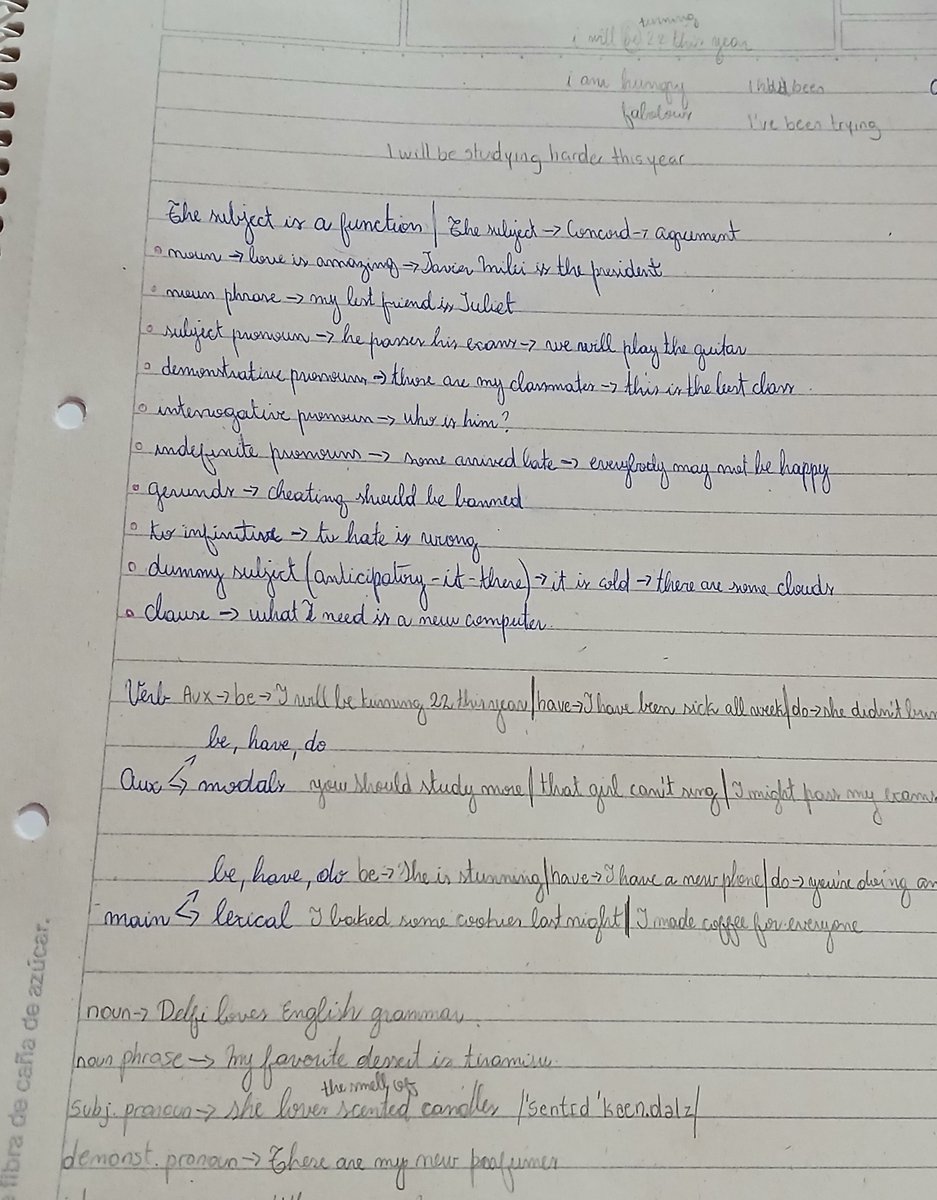 turning
i will be 22 this year
i am hungry I had been
fabolous I've been trying
I will be studying harder this year
The subject is a function | The subject → Concord → agreement
noun → love is amazing → Javier Milei is the president
noun phrase → my best friend is Juliet
subject pronoun → he passes his exams → we will play the guitar
demonstrative pronouns → those are my classmates → this is the best class.
interrogative pronoun → who is him?
indefinite pronouns → some arrived late → everybody may not be happy
gerunds → cheating should be banned
to infinitive → to hate is wrong
dummy subject (anticipatory - it - there) → it is cold → there are some clouds
clause → what I need is a new computer.
Verb Aux → be → I will be turning 22 this year | have → I have been sick all week | do → she didn't
be, have, do
Aux modals you should study more | that girl can't sing | I might pass my exams
be, have, do be → She is stunning | have → I have a new phone | do → you're doing
main lexical I baked some cookies last night | I made coffee for everyone
noun → Delfi loves English grammar.
noun phrase → My favorite dessert is tiramisu.
the smell of
subj. pronoun → she loves scented candles /'sentɪd 'kæn.dəlz/
demonst. pronoun → These are my new perfumes
fibra de caña de azúcar.